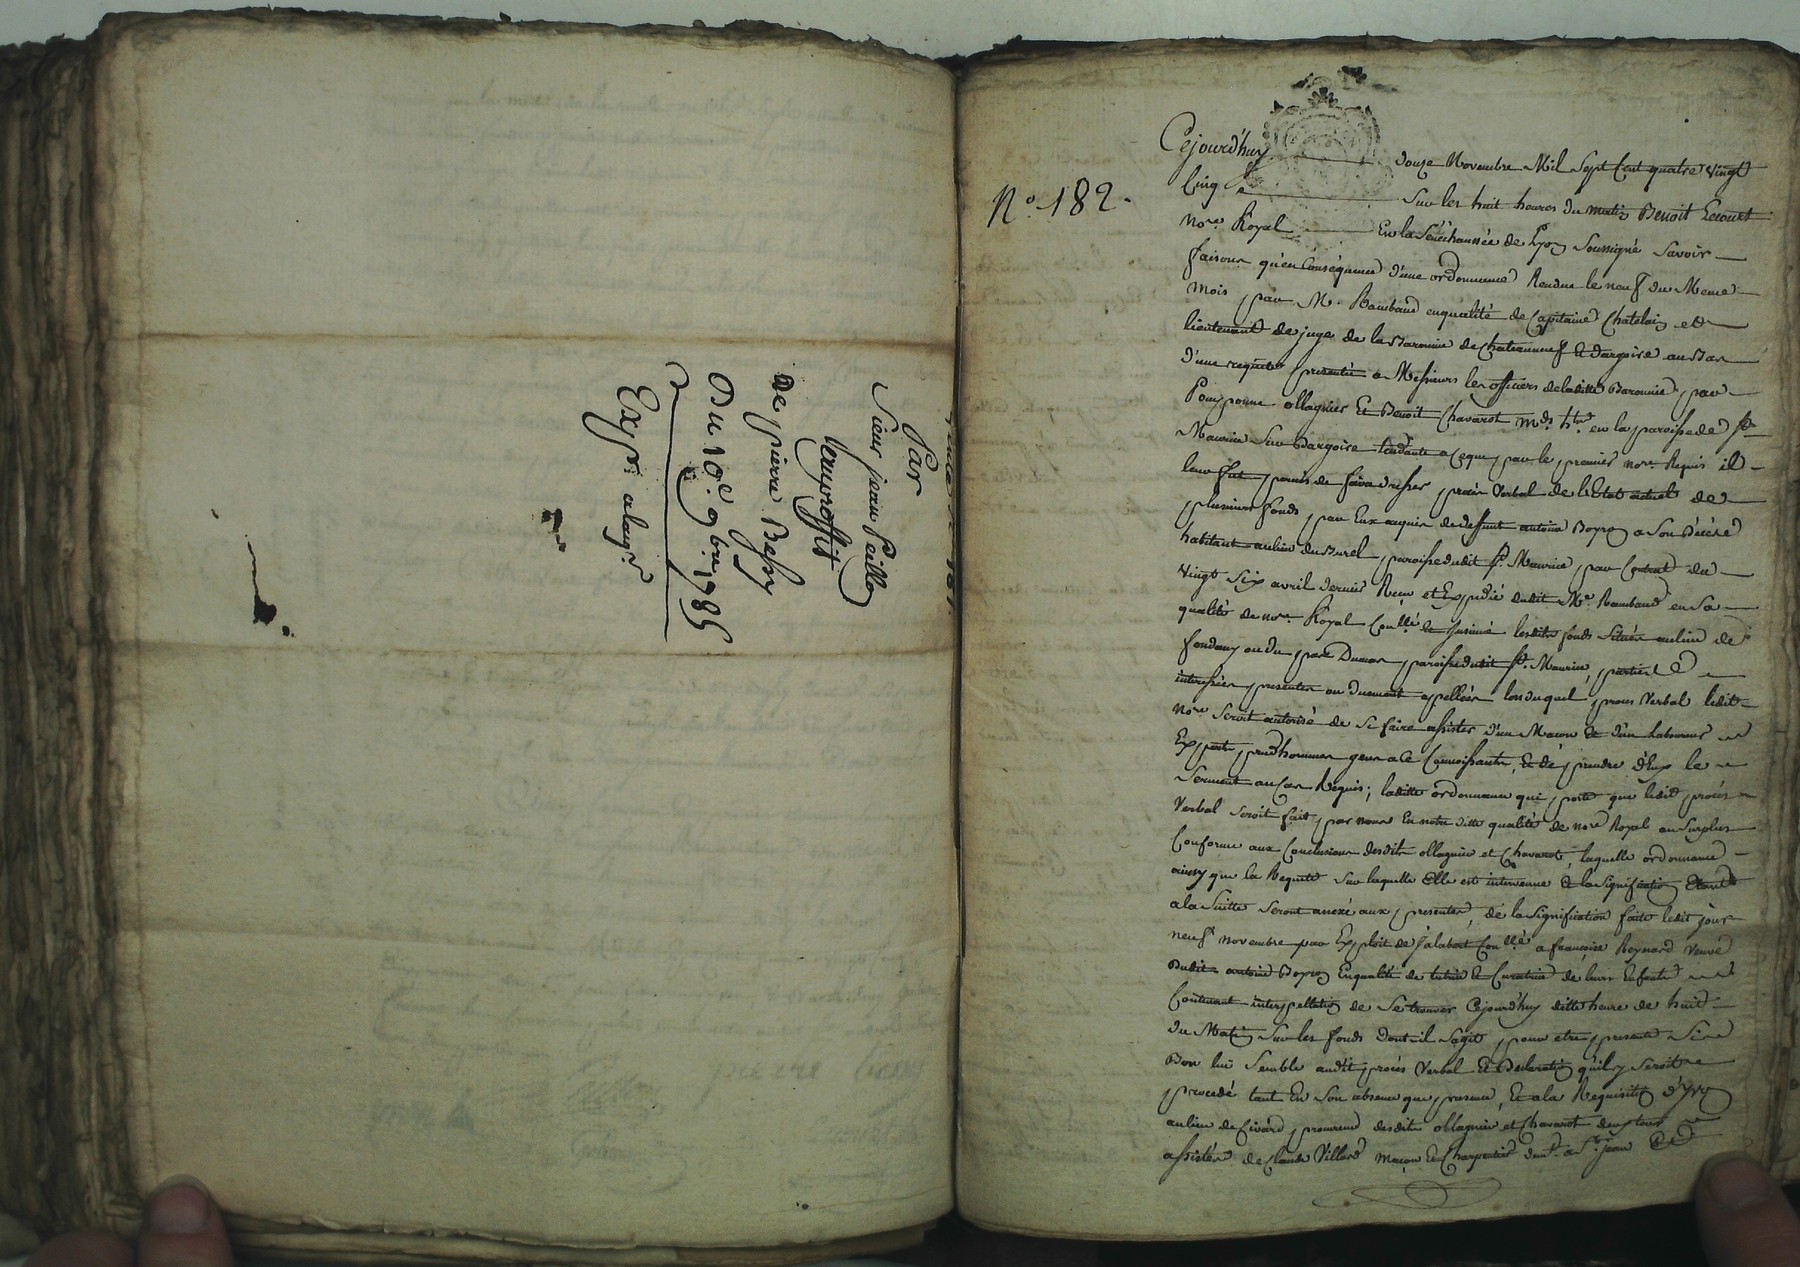 Par
Sieur jean Peillon
de pierre Bessy
Du 10e. 9bre 1785
Exp.
N.o 182.
Cejourd'huy douze Novembre Mil Sept Cent quatre vingt
Cinq Sur les huit heures du matin Benoit Lecourt
Nore. Royal En la Sénéchaussée de Lyon Soussigné Savoir
faisons qu'en Conséquence d'une ordonnance Rendue le neuf du Meme
Mois par M. Rambaud en qualité de Capitaine Chatelain et
lieutenant de juge de la Baronnie de Chateauneuf et dargoire au Bas
d'une requete presentée a Messieurs les officiers de laditte Baronnie par
Pomponne ollagnier Et Benoit Chavarot mds. hts. en la paroisse de st.
Maurice Sur Dargoire tendante a ce que par le premier nore. Requis il
leur fut permis de faire dresser procès Verbal de l'Etat actuel de
plusieurs fonds par Eux acquis de deffunt antoine Boyron a Son décédé
habitant au lieu du Burel paroisse dudit st. Maurice par Contrat du
vingt Six avril dernier Reçu et Expedié dudit Me. Rambaud en Sa
qualité de nore. Royal Conllé. et Insinué lesdits fonds Situés au lieu de
ou du paroisse dudit st. Maurice, parties
interessées presentes ou duement appellées lors duquel procès Verbal ledit
Nore Seroit autorisé de Se faire assister d'un Macon Et d'un Laboureur
Experts prudhommes gens a Ce Connoissants, Et de prendre d'Eux le
Serment au Cas Requis; laditte ordonnance qui porte que ledit procès
Verbal Seroit fait par nous En notre ditte qualité de nore Royal au Surplus
Conforme aux Conclusions desdits ollagnier et Chavarot, laquelle ordonnance
ainsy que la Requete Sur laquelle Elle est intervenue Et la Signification Etant
a la Suitte Seront anexé aux presentes, de la Signification faite ledit jour
neuf novembre par Exploit de Conllé. a françoise Reynard veuve
Dudit antoine Boyron En qualité de tutrice Et Curatrice de leurs Enfants
Contenant interpellation de Se trouver Cejourd'huy ditte heure de huit
du Matin Sur les fonds dont il Sagit pour etre presente Si
Bon lui Semble audit procès Verbal Et Declaration qu'il y Seroit
procedé tant En Son absence que presence, Et a la Requisition d'
au lieu de Civard procureur desdits ollagnier et Chavarot
assistés de Claude Villard Maçon Et Charpentier demt. a St. jean